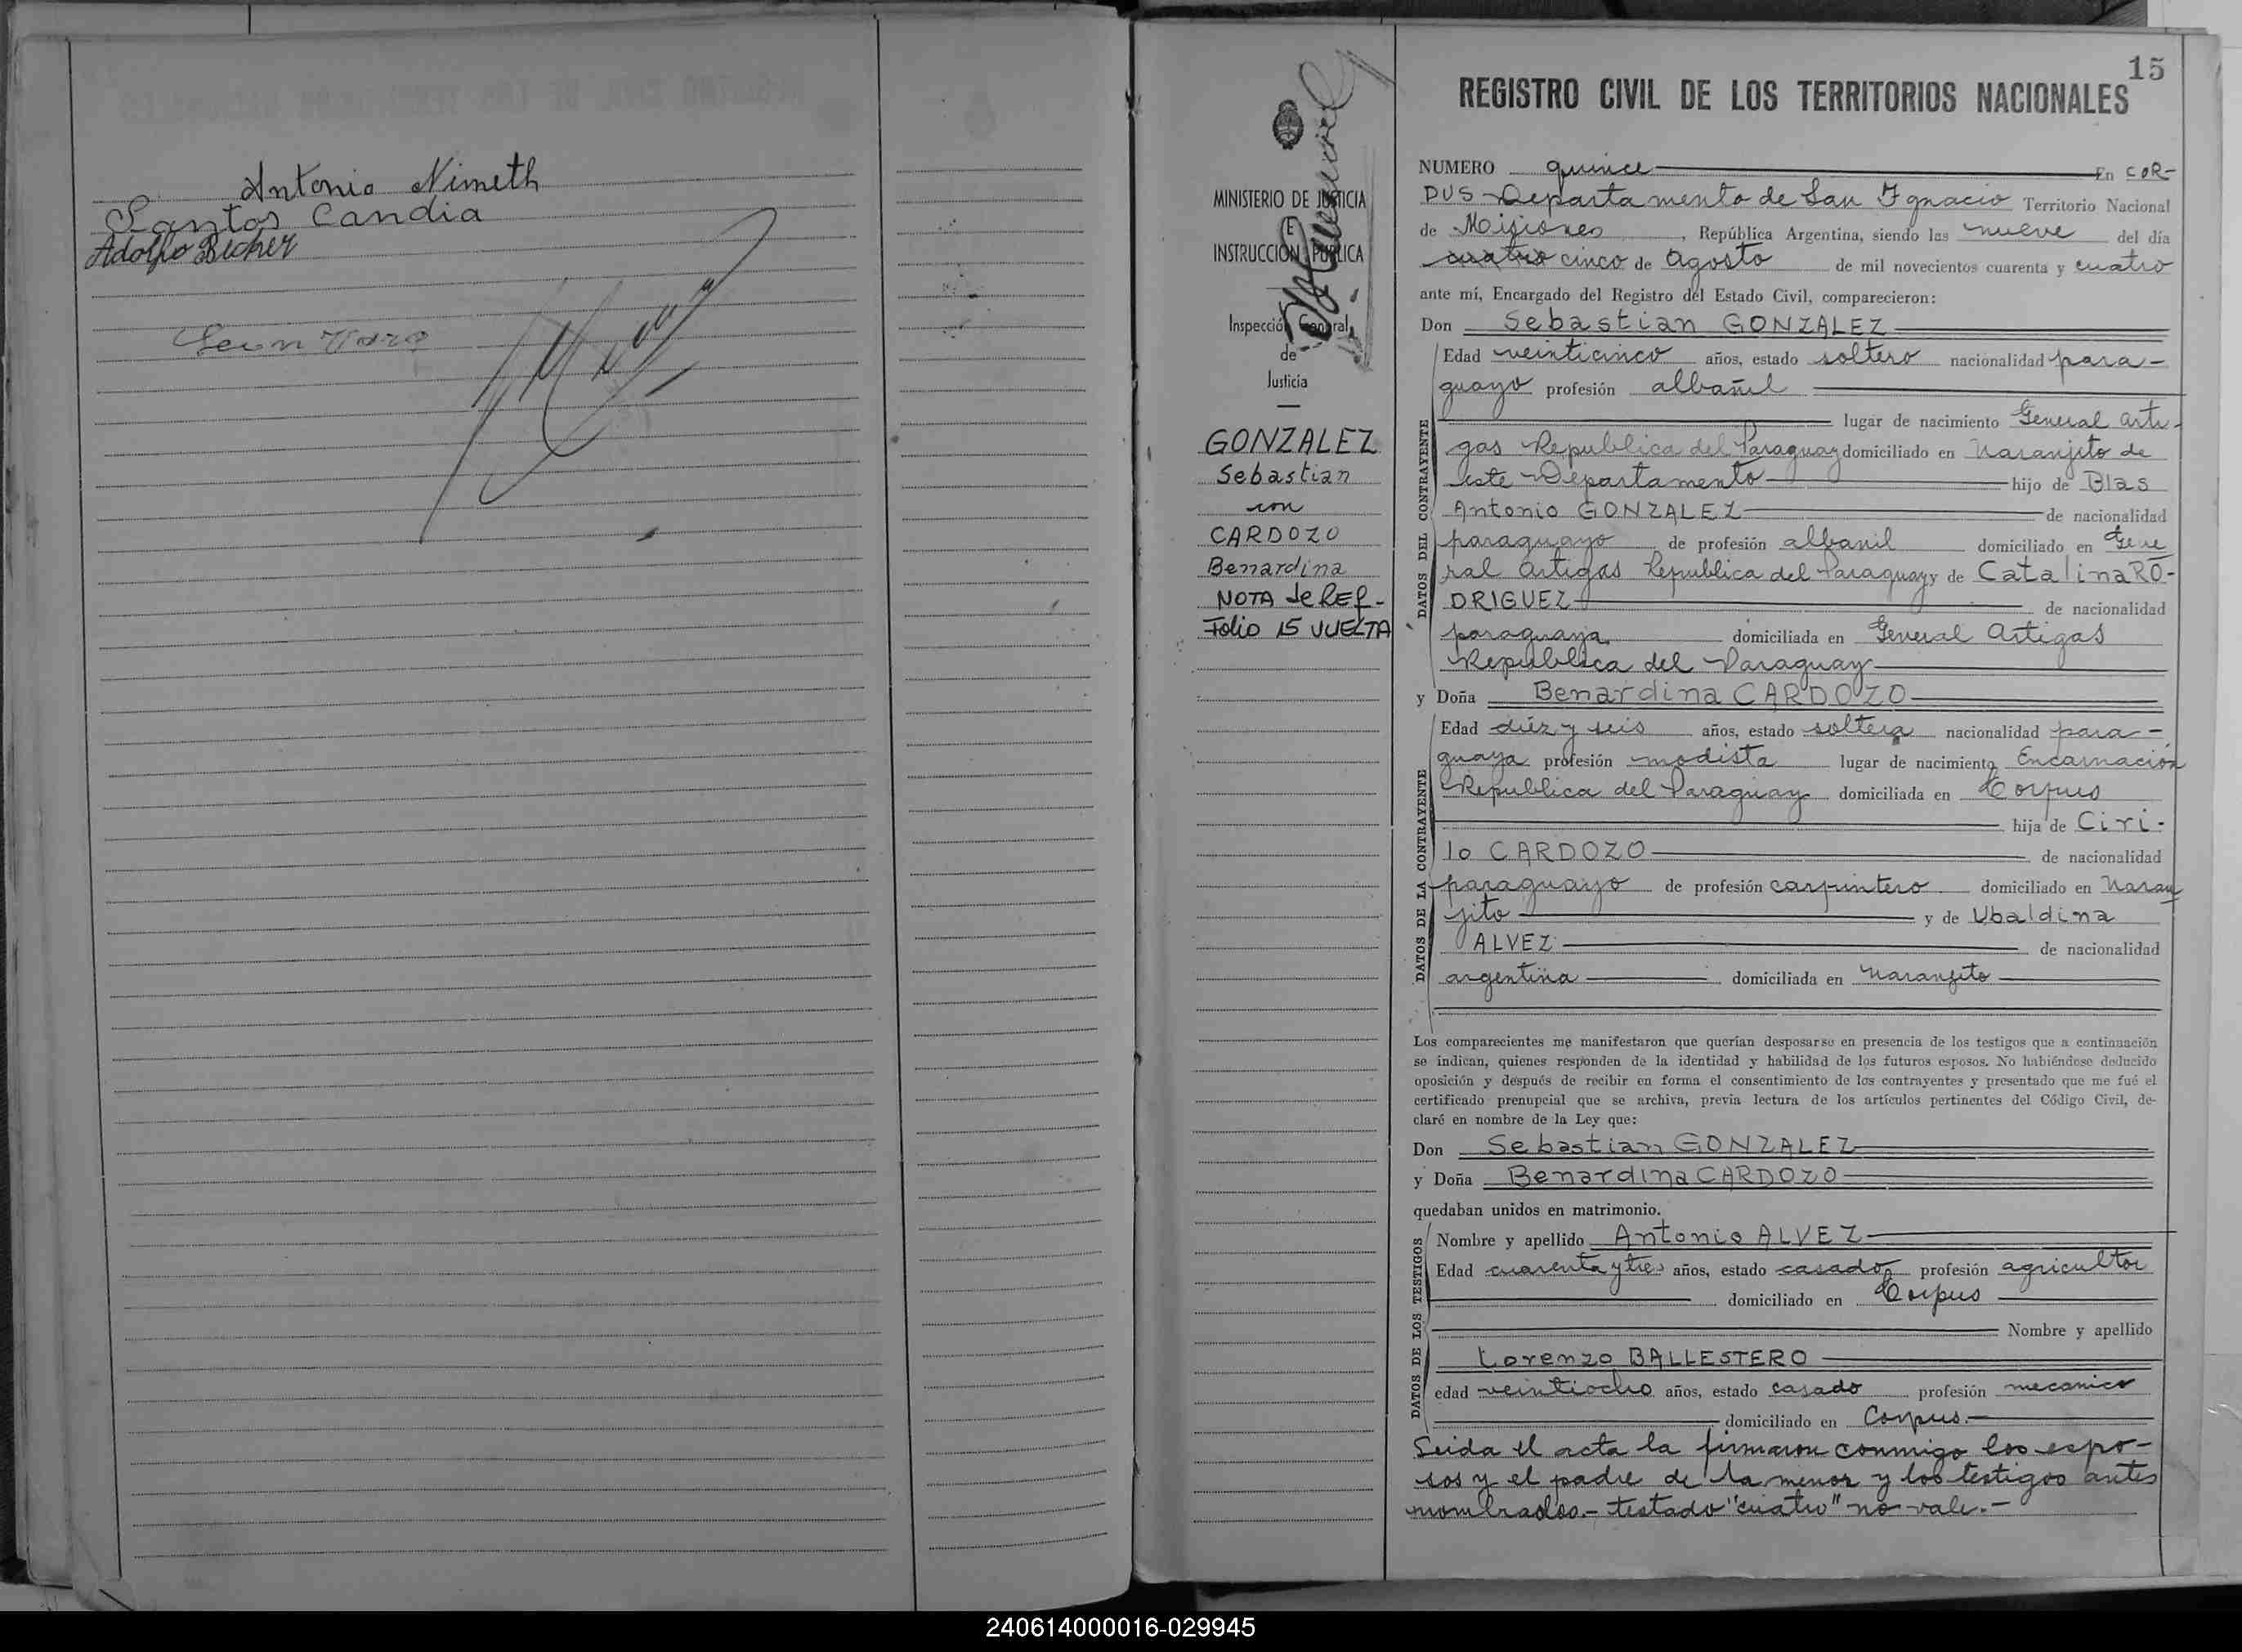 Antonio Nimeth
Santos Candia
Adolfo Becher
MINISTERIO DE JUSTICIA
E
INSTRUCCIÓN PÚBLICA
Inspección General
de
Justicia
GONZALEZ
Sebastian
con
CARDOZO
Benardina
NOTA de REF-
Folio 15 VUELTA
15
REGISTRO CIVIL DE LOS TERRITORIOS NACIONALES
NUMERO quince En COR-
PUS Departamento de San Ignacio Territorio Nacional
de Misiones, República Argentina, siendo las nueve del día
cuatro cinco de Agosto de mil novecientos cuarenta y cuatro
ante mí, Encargado del Registro del Estado Civil, comparecieron:
Don Sebastian GONZALEZ
Edad veinticinco años, estado soltero nacionalidad para-
guayo profesión albañil
lugar de nacimiento General Arti-
gas Republica del Paraguay domiciliado en Naranjito de
este Departamento hijo de Blas
Antonio GONZALEZ de nacionalidad
paraguayo de profesión albanil domiciliado en Gene
ral Artigas Republica del Paraguay y de Catalina RO-
DRIGUEZ de nacionalidad
paraguaya domiciliada en General Artigas
Republica del Paraguay
y Doña Benardina CARDOZO
Edad diéz y seis años, estado soltera nacionalidad para-
guaya profesión modista lugar de nacimiento Encarnación
Republica del Paraguay domiciliada en Corpus
hija de Ciri-
lo CARDOZO de nacionalidad
paraguayo de profesión carpintero domiciliado en Naran
jito y de Ubaldina
ALVEZ de nacionalidad
argentina domiciliada en Naranjito
Los comparecientes me manifestaron que querían desposarse en presencia de los testigos que a continuación
se indican, quienes responden de la identidad y habilidad de los futuros esposos. No habiéndose deducido
oposición y después de recibir en forma el consentimiento de los contrayentes y presentado que me fué el
certificado prenupcial que se archiva, previa lectura de los artículos pertinentes del Código Civil, de-
claré en nombre de la Ley que:
Don Sebastian GONZALEZ
y Doña Benardina CARDOZO
quedaban unidos en matrimonio.
Nombre y apellido Antonio ALVEZ
Edad cuarenta y tres años, estado casado profesión agricultor
domiciliado en Corpus
Nombre y apellido
Lorenzo BALLESTERO
edad veintiocho años, estado casado profesión mecanico
domiciliado en Corpus.-
Leida el acta la firmaron conmigo los espo-
sos y el padre de la menor y los testigos antes
nombrados.- testado "cuatro" no vale.-
DATOS DEL CONTRAYENTE
DATOS DE LA CONTRAYENTE
DATOS DE LOS TESTIGOS
240614000016-029945